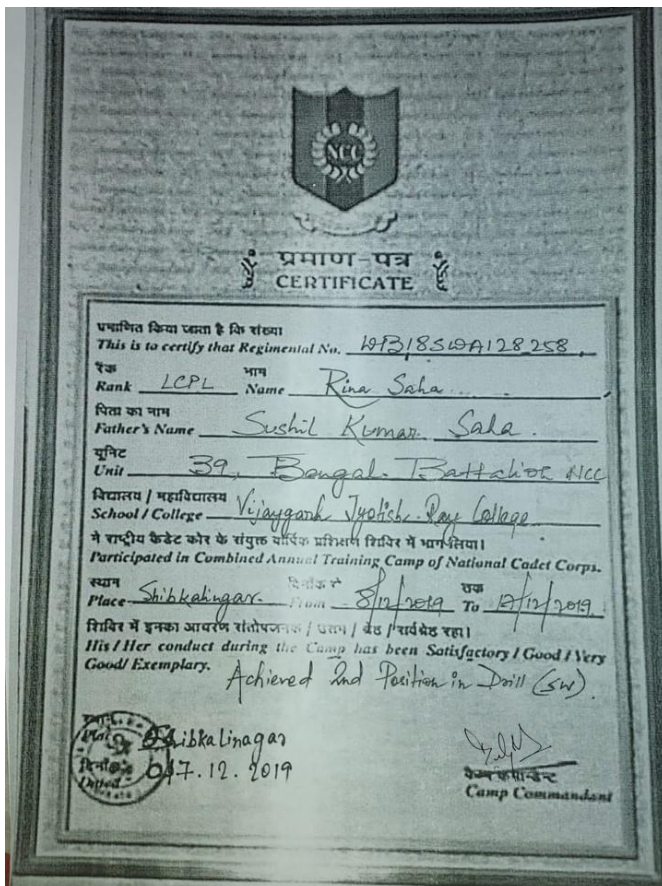 NCC
प्रमाण-पत्र
CERTIFICATE
प्रमाणित किया जाता है कि संख्या
This is to certify that Regimental No. WB18SWA128258
रैंक नाम
Rank LCPL Name Rina Saha
पिता का नाम
Father's Name Sushil Kumar Saha.
यूनिट
Unit 39, Bengal Battalion NCC
विद्यालय / महाविद्यालय
School / College Vijaygarh Jyotish Ray College
ने राष्ट्रीय कैडेट कोर के संयुक्त वार्षिक प्रशिक्षण शिविर में भाग लिया।
Participated in Combined Annual Training Camp of National Cadet Corps.
स्थान दिनाँक से तक
Place Shibkalinagar From 8/12/2019 To 17/12/2019
शिविर में इनका आचरण संतोषजनक / उत्तम / श्रेष्ठ / सर्वश्रेष्ठ रहा।
His / Her conduct during the Camp has been Satisfactory / Good / Very
Good / Exemplary.
Achieved 2nd Position in Drill (SW).
Shibkalinagar
दिनाँक
Dated 17.12.2019
कैम्प कमान्डेन्ट
Camp Commandant